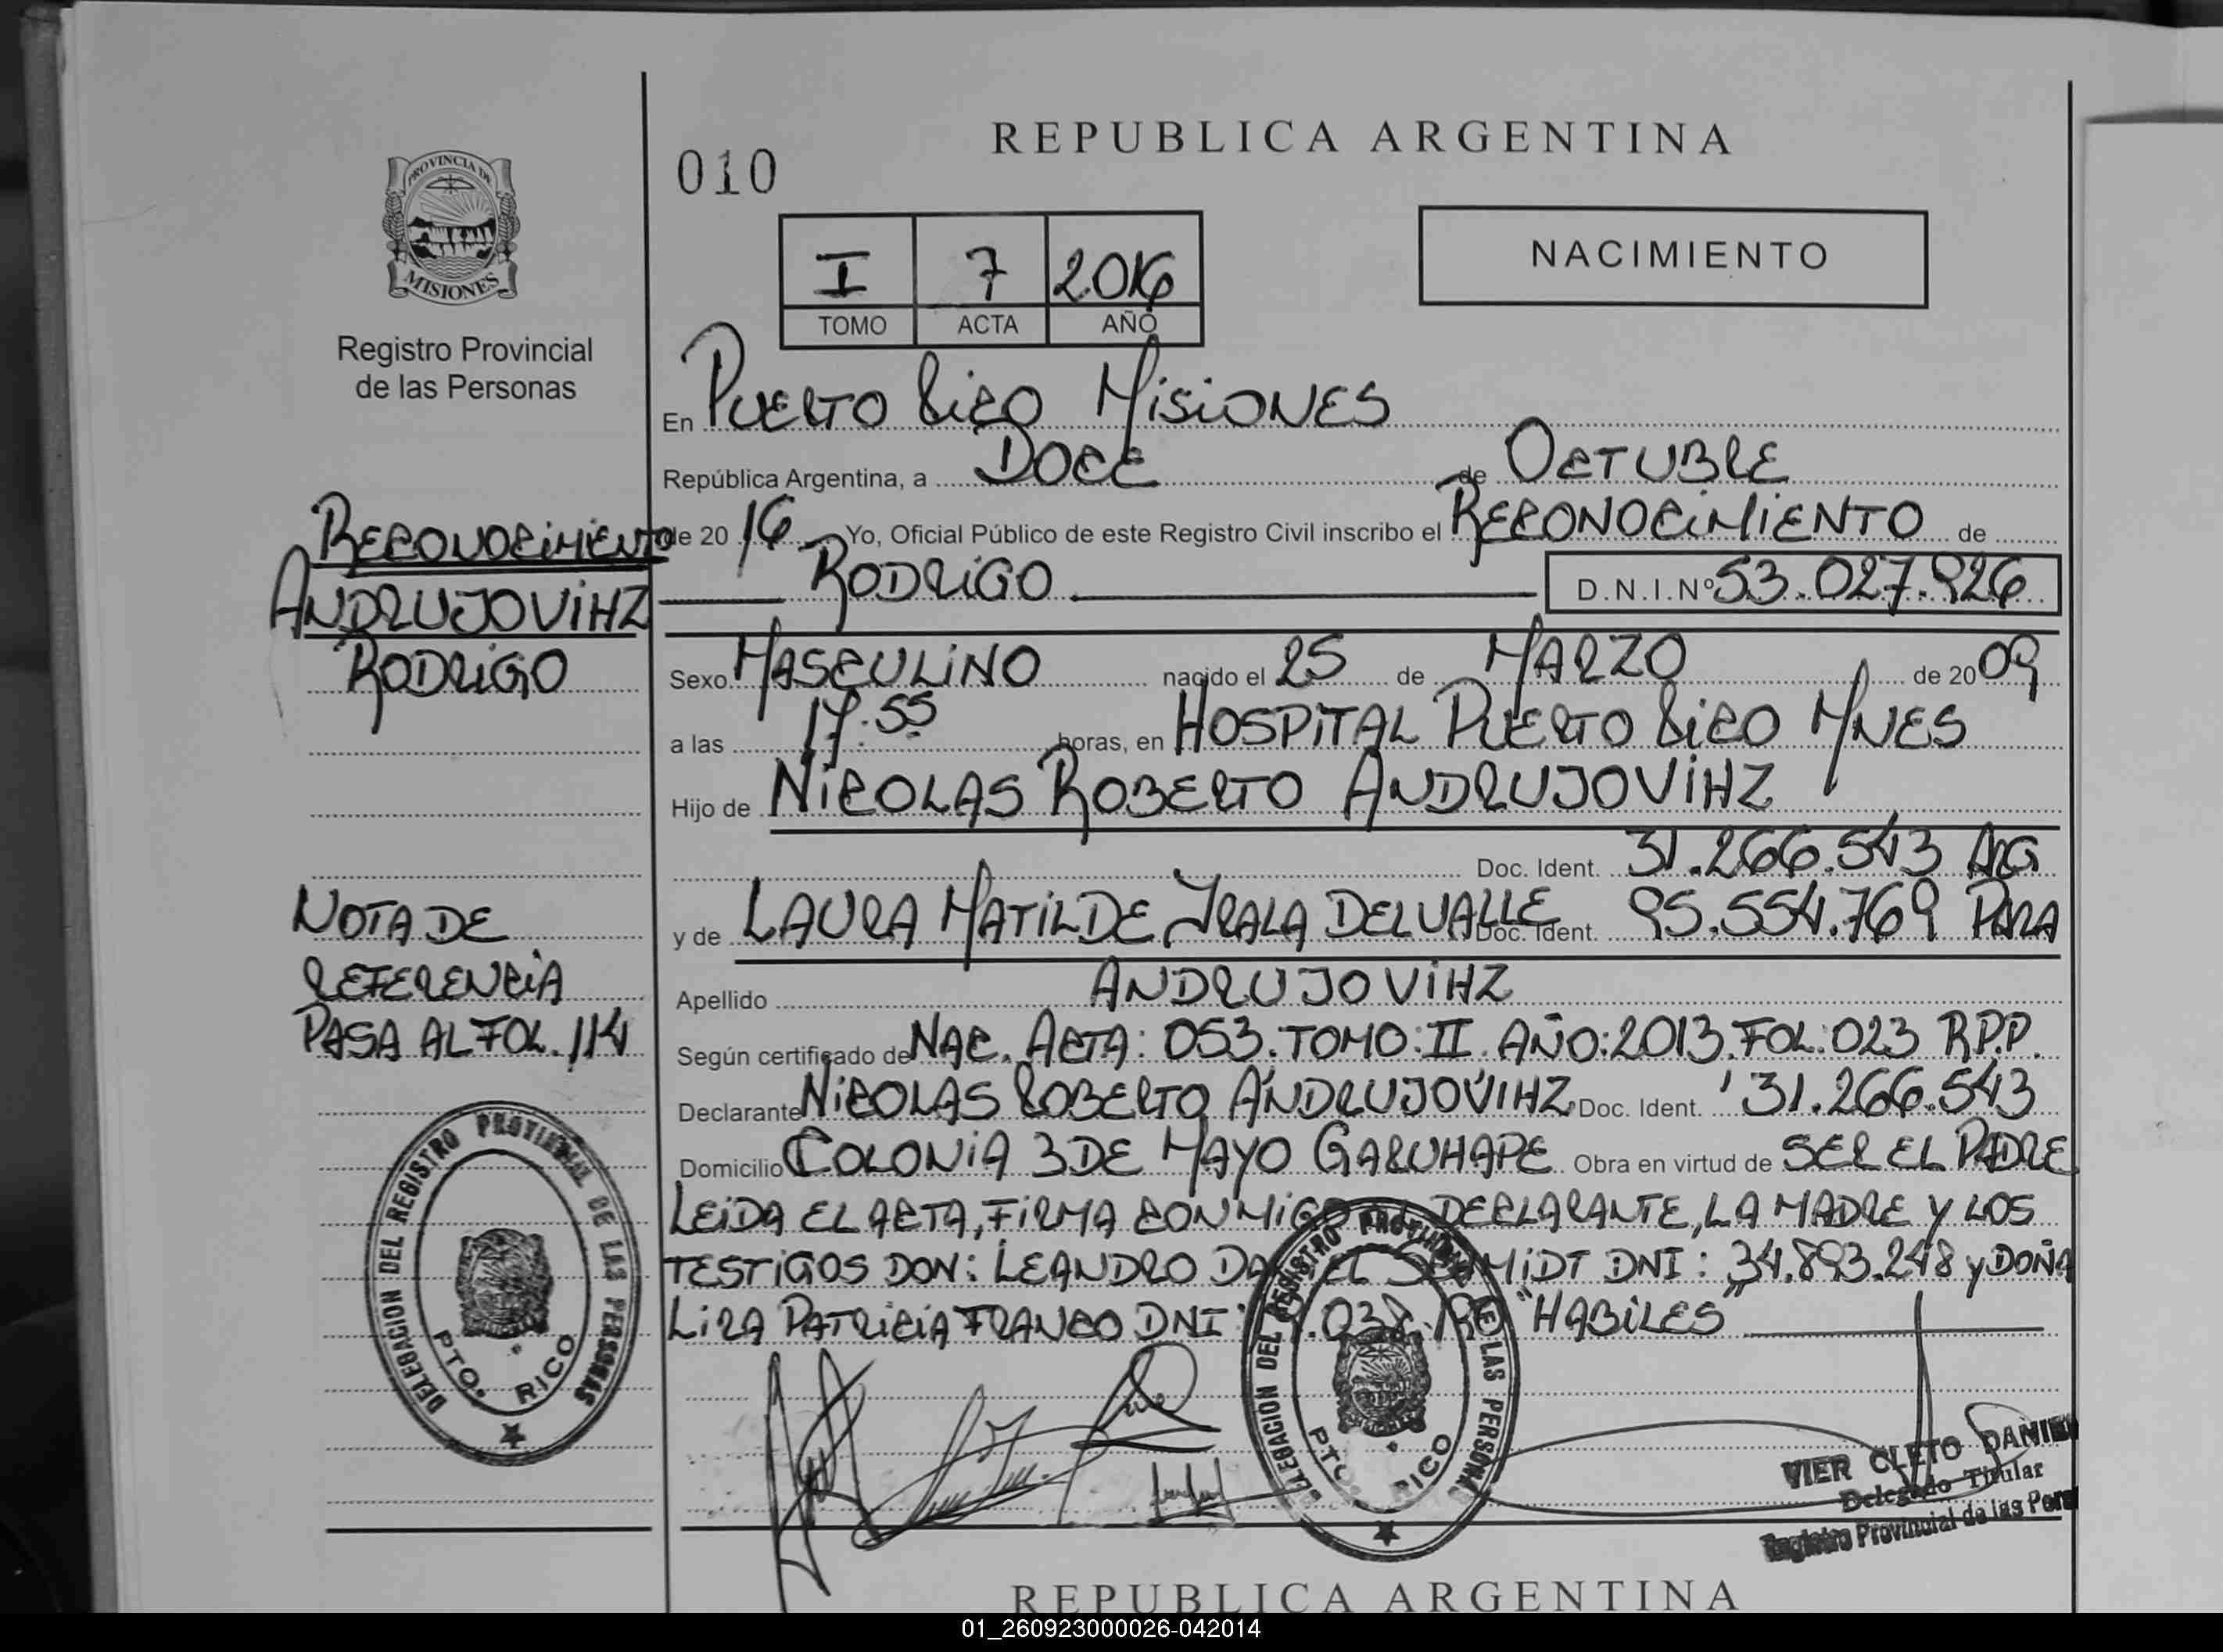 PROVINCIA DE
MISIONES
Registro Provincial
de las Personas
RECONOCIMIENTO
ANDRUJOVIHZ
RODRIGO
NOTA DE
REFERENCIA
PASA AL FOL. 114
DELEGACION DEL REGISTRO PROVINCIAL DE LAS PERSONAS
PTO. RICO
REPUBLICA ARGENTINA
010
NACIMIENTO
I 7 2016
TOMO ACTA AÑO
En PUERTO RICO MISIONES
República Argentina, a DOCE de OCTUBRE
de 2016 Yo, Oficial Público de este Registro Civil inscribo el RECONOCIMIENTO de
RODRIGO D.N.I.Nº 53.027.926
Sexo MASCULINO nacido el 25 de MARZO de 2009
a las 17.55 horas, en HOSPITAL PUERTO RICO MNES
Hijo de NICOLAS ROBERTO ANDRUJOVIHZ
Doc. Ident. 31.266.543 ARG
y de LAURA MATILDE IRALA DELVALLE Doc. Ident. 95.554.769 PARA
Apellido ANDRUJOVIHZ
Según certificado de NAC. ACTA: 053. TOMO: II. AÑO: 2013. FOL: 023 R.P.P.
Declarante NICOLAS ROBERTO ANDRUJOVIHZ Doc. Ident. 31.266.543
Domicilio COLONIA 3 DE MAYO GARUHAPE Obra en virtud de SER EL PADRE
LEIDA EL ACTA, FIRMA CONMIGO DECLARANTE, LA MADRE Y LOS
TESTIGOS DON: LEANDRO DANIEL SCHMIDT DNI: 34.893.248 y DOÑA
LIRA PATRICIA FRANCO DNI: .038. "HABILES"
DELEGACION DEL REGISTRO PROVINCIAL DE LAS PERSONAS
PTO. RICO
VIER CLETO DANIEL
Delegado Titular
Registro Provincial de las Pers
REPUBLICA ARGENTINA
01_260923000026-042014